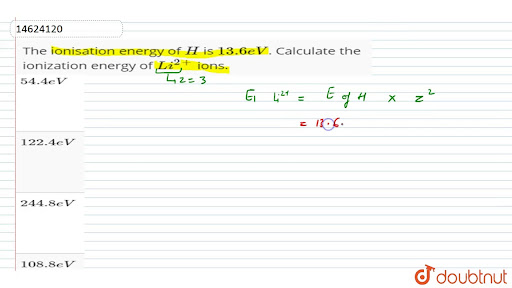 14624120
The ionisation energy of H is 13.6eV. Calculate the
ionization energy of Li²⁺ ions.
54.4eV
Z = 3
E₁ Li²⁺ = E of H × Z²
= 13.6.
122.4eV
244.8eV
108.8eV
doubtnut